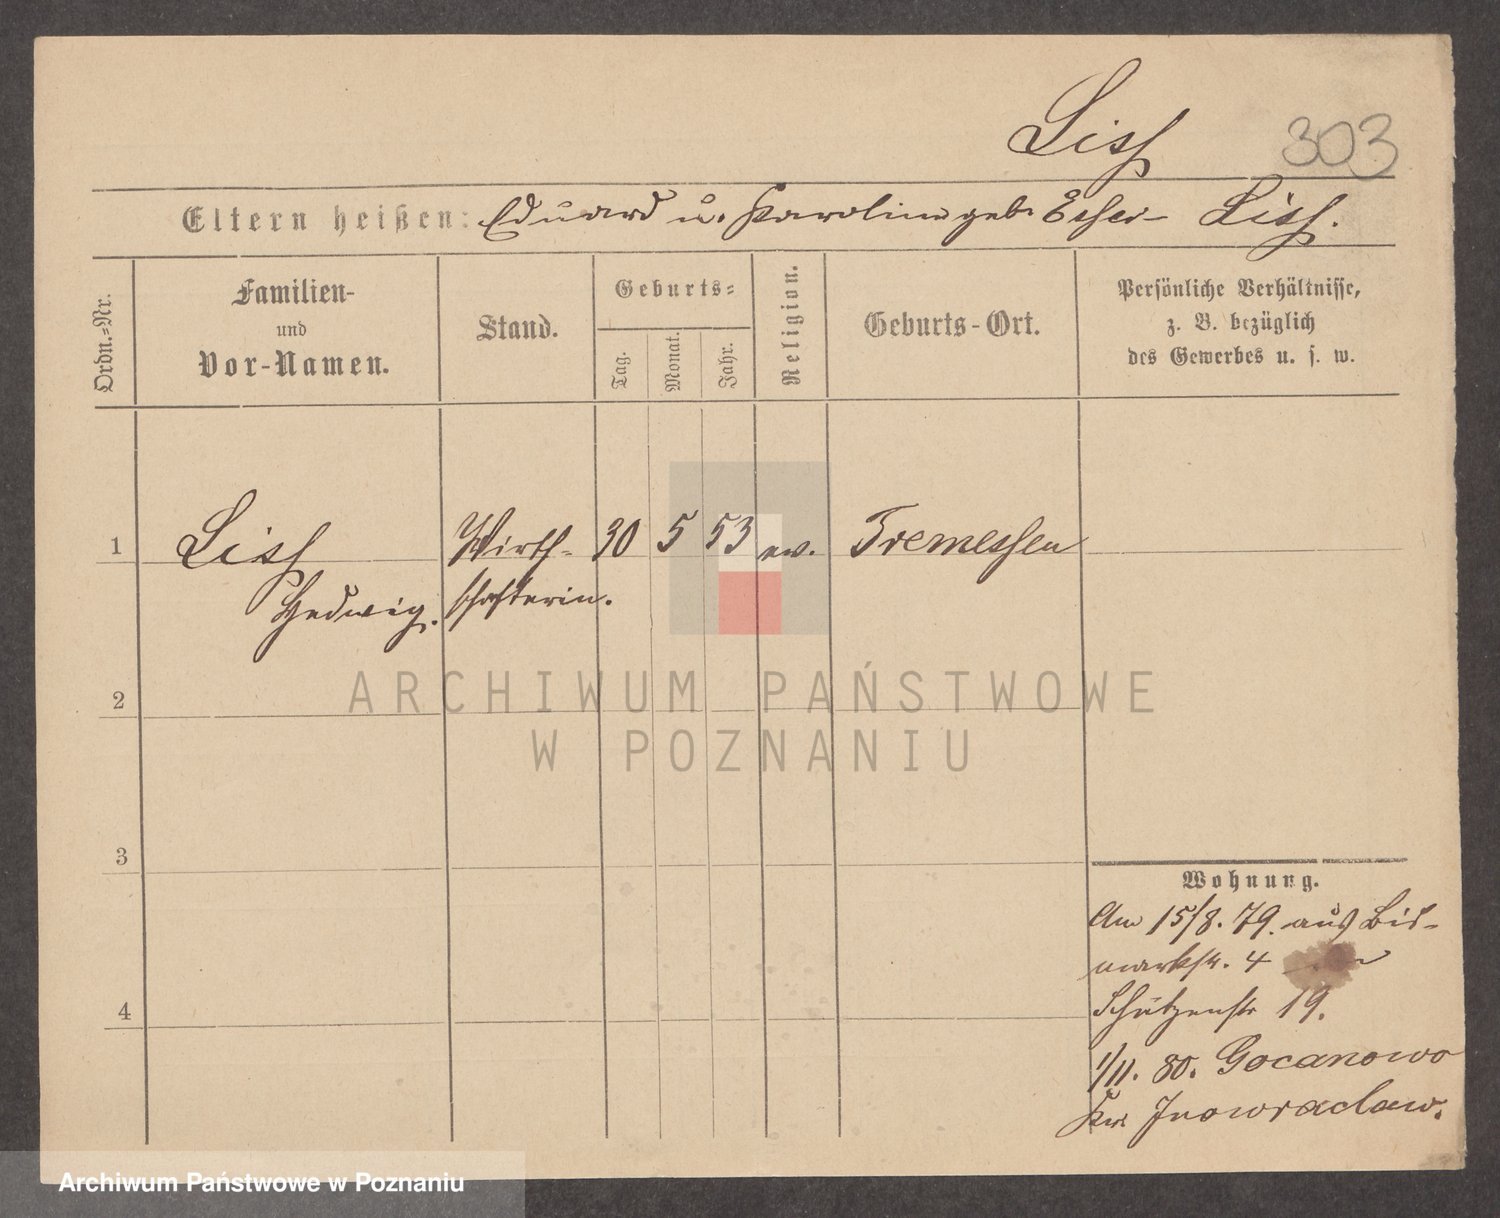 Liss
303
Eltern heißen: Eduard u. Karoline geb. Esher- Liss.
Ordn.-Nr.
Familien-
und
Vor-Namen.
Stand.
Geburts-
Tag.
Monat.
Jahr.
Religion.
Geburts-Ort.
Persönliche Verhältnisse,
z. B. bezüglich
des Gewerbes u. s. w.
1
Liss
Hedwig.
Wirth-
schafterin.
30
5
53
ev.
Tremessen
2
ARCHIWUM PAŃSTWOWE
W POZNANIU
3
4
Wohnung.
Am 15/8. 79. aus Bis-
markstr. 4
Schützenstr 19.
1/11. 80. Gocanowo
Krs Inowraclaw.
Archiwum Państwowe w Poznaniu